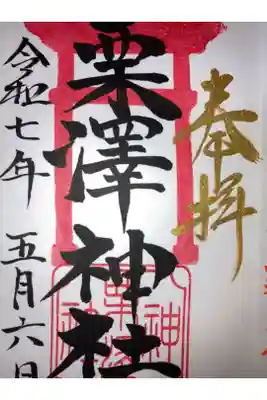 奉拝
栗澤神社
令和七年 五月六日